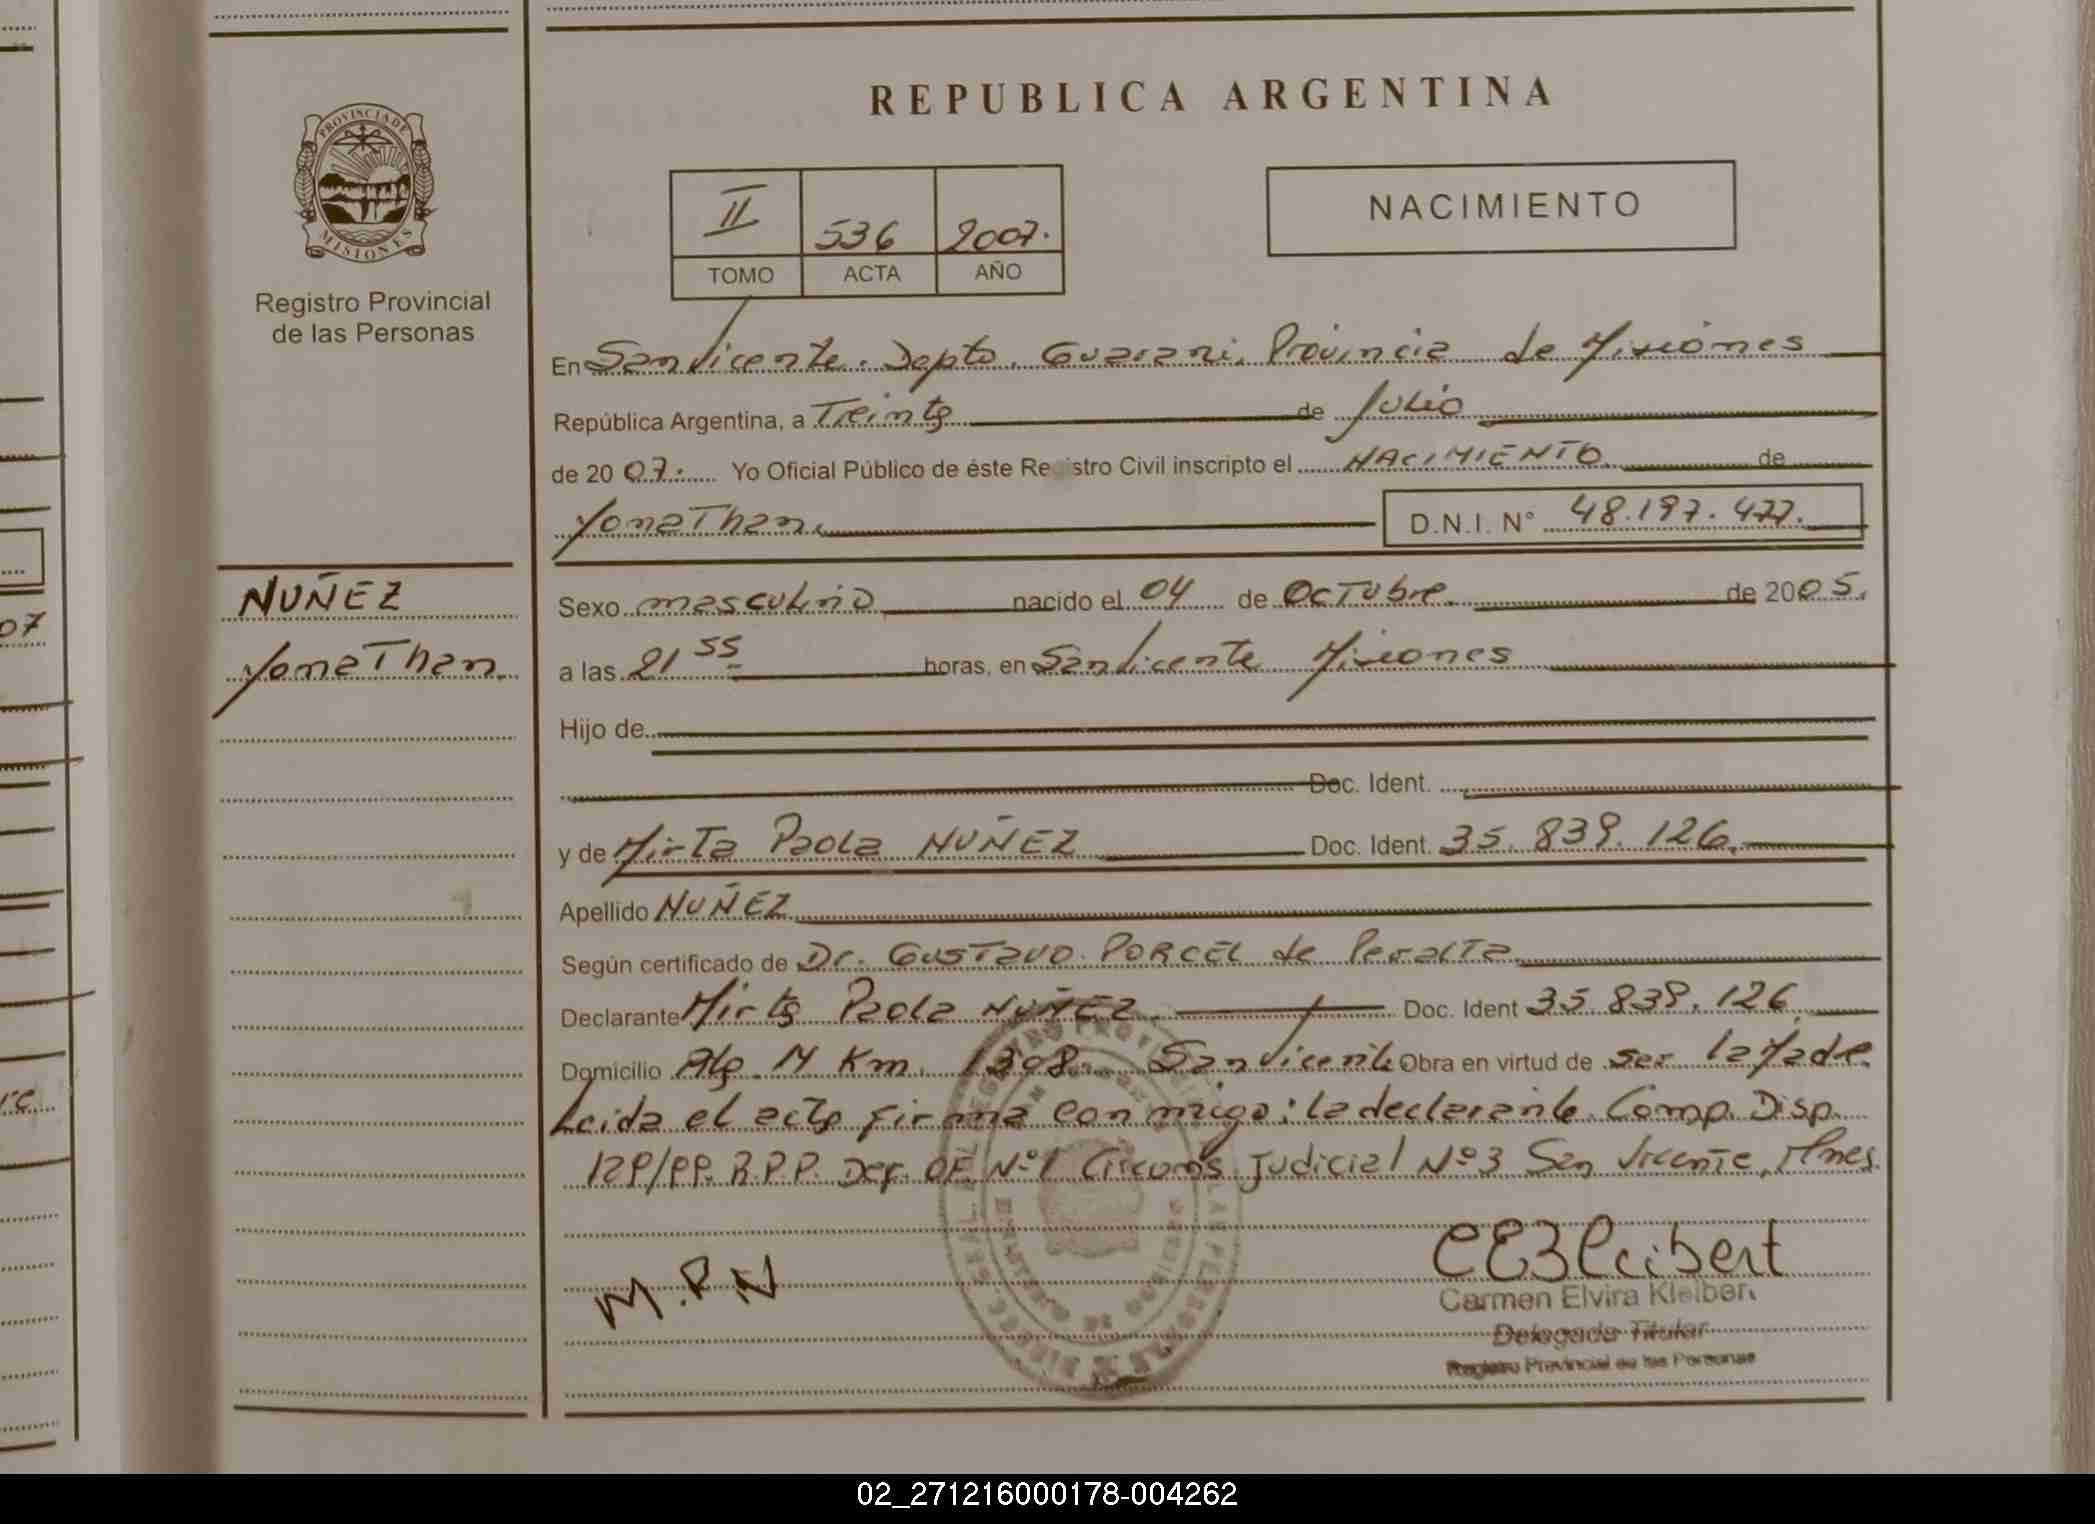 REPUBLICA ARGENTINA
PROVINCIA DE
MISIONES
Registro Provincial
de las Personas
II 536 2007.
TOMO ACTA AÑO
NACIMIENTO
En San Vicente. Depto. Guarani. Provincia de Misiones
República Argentina, a Treinta de Julio
de 2007. Yo Oficial Público de éste Registro Civil inscripto el NACIMIENTO de
Yonathan. D.N.I. N° 48.197.477.
NUÑEZ
Yonathan.
Sexo masculino nacido el 04 de Octubre de 2005.
a las 21 55 horas, en San Vicente Misiones
Hijo de
Doc. Ident.
y de Mirta Paola NUÑEZ Doc. Ident. 35.839.126.
Apellido NUÑEZ
Según certificado de Dr. Gustavo PORCEL de Peralta
Declarante Mirta Paola NUÑEZ. Doc. Ident 35.839.126
Domicilio Km. 1308. San Vicente Obra en virtud de ser la Madre.
Leida el acta firma conmigo: la declarante. Comp. Disp.
R.P.P. Def. OF. N°1 Circuns. Judicial N°3 San Vicente, Mnes.
M.P.N
CEKleibert
Carmen Elvira Kleibert
Delegada Titular
Registro Provincial de las Personas
02_271216000178-004262